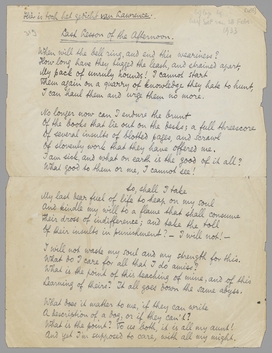 van Lawrence.
Last Lesson of the Afternoon.
When will the bell ring, and end this weariness?
How long have they tugged the leash, and strained apart
My pack of unruly hounds! I cannot start
Them again on a quarry of knowledge they hate to hunt,
I can haul them and urge them no more.
No longer now can I endure the brunt
Of the books that lie out on the desks; a full threescore
of several insults of blotted pages, and scrawl
Of slovenly work that they have offered me.
I am sick, and what on earth is the good of it all?
What good to them or me, I cannot see!
So, shall I take
My last dear fuel of life to heap on my soul
And kindle my will to a flame that shall consume
Their dross of indifference; and take the toll
Of their insults in punishment? — I will not! —
I will not waste my soul and my strength for this.
What do I care for all that I do amiss!
What is the point of this teaching of mine, and of this
learning of theirs? It all goes down the same abyss.
What does it matter to me, if they can write
A description of a dog, or if they can't?
What is the point? To us both, it is all my aunt!
And yet I'm supposed to care, with all my might.